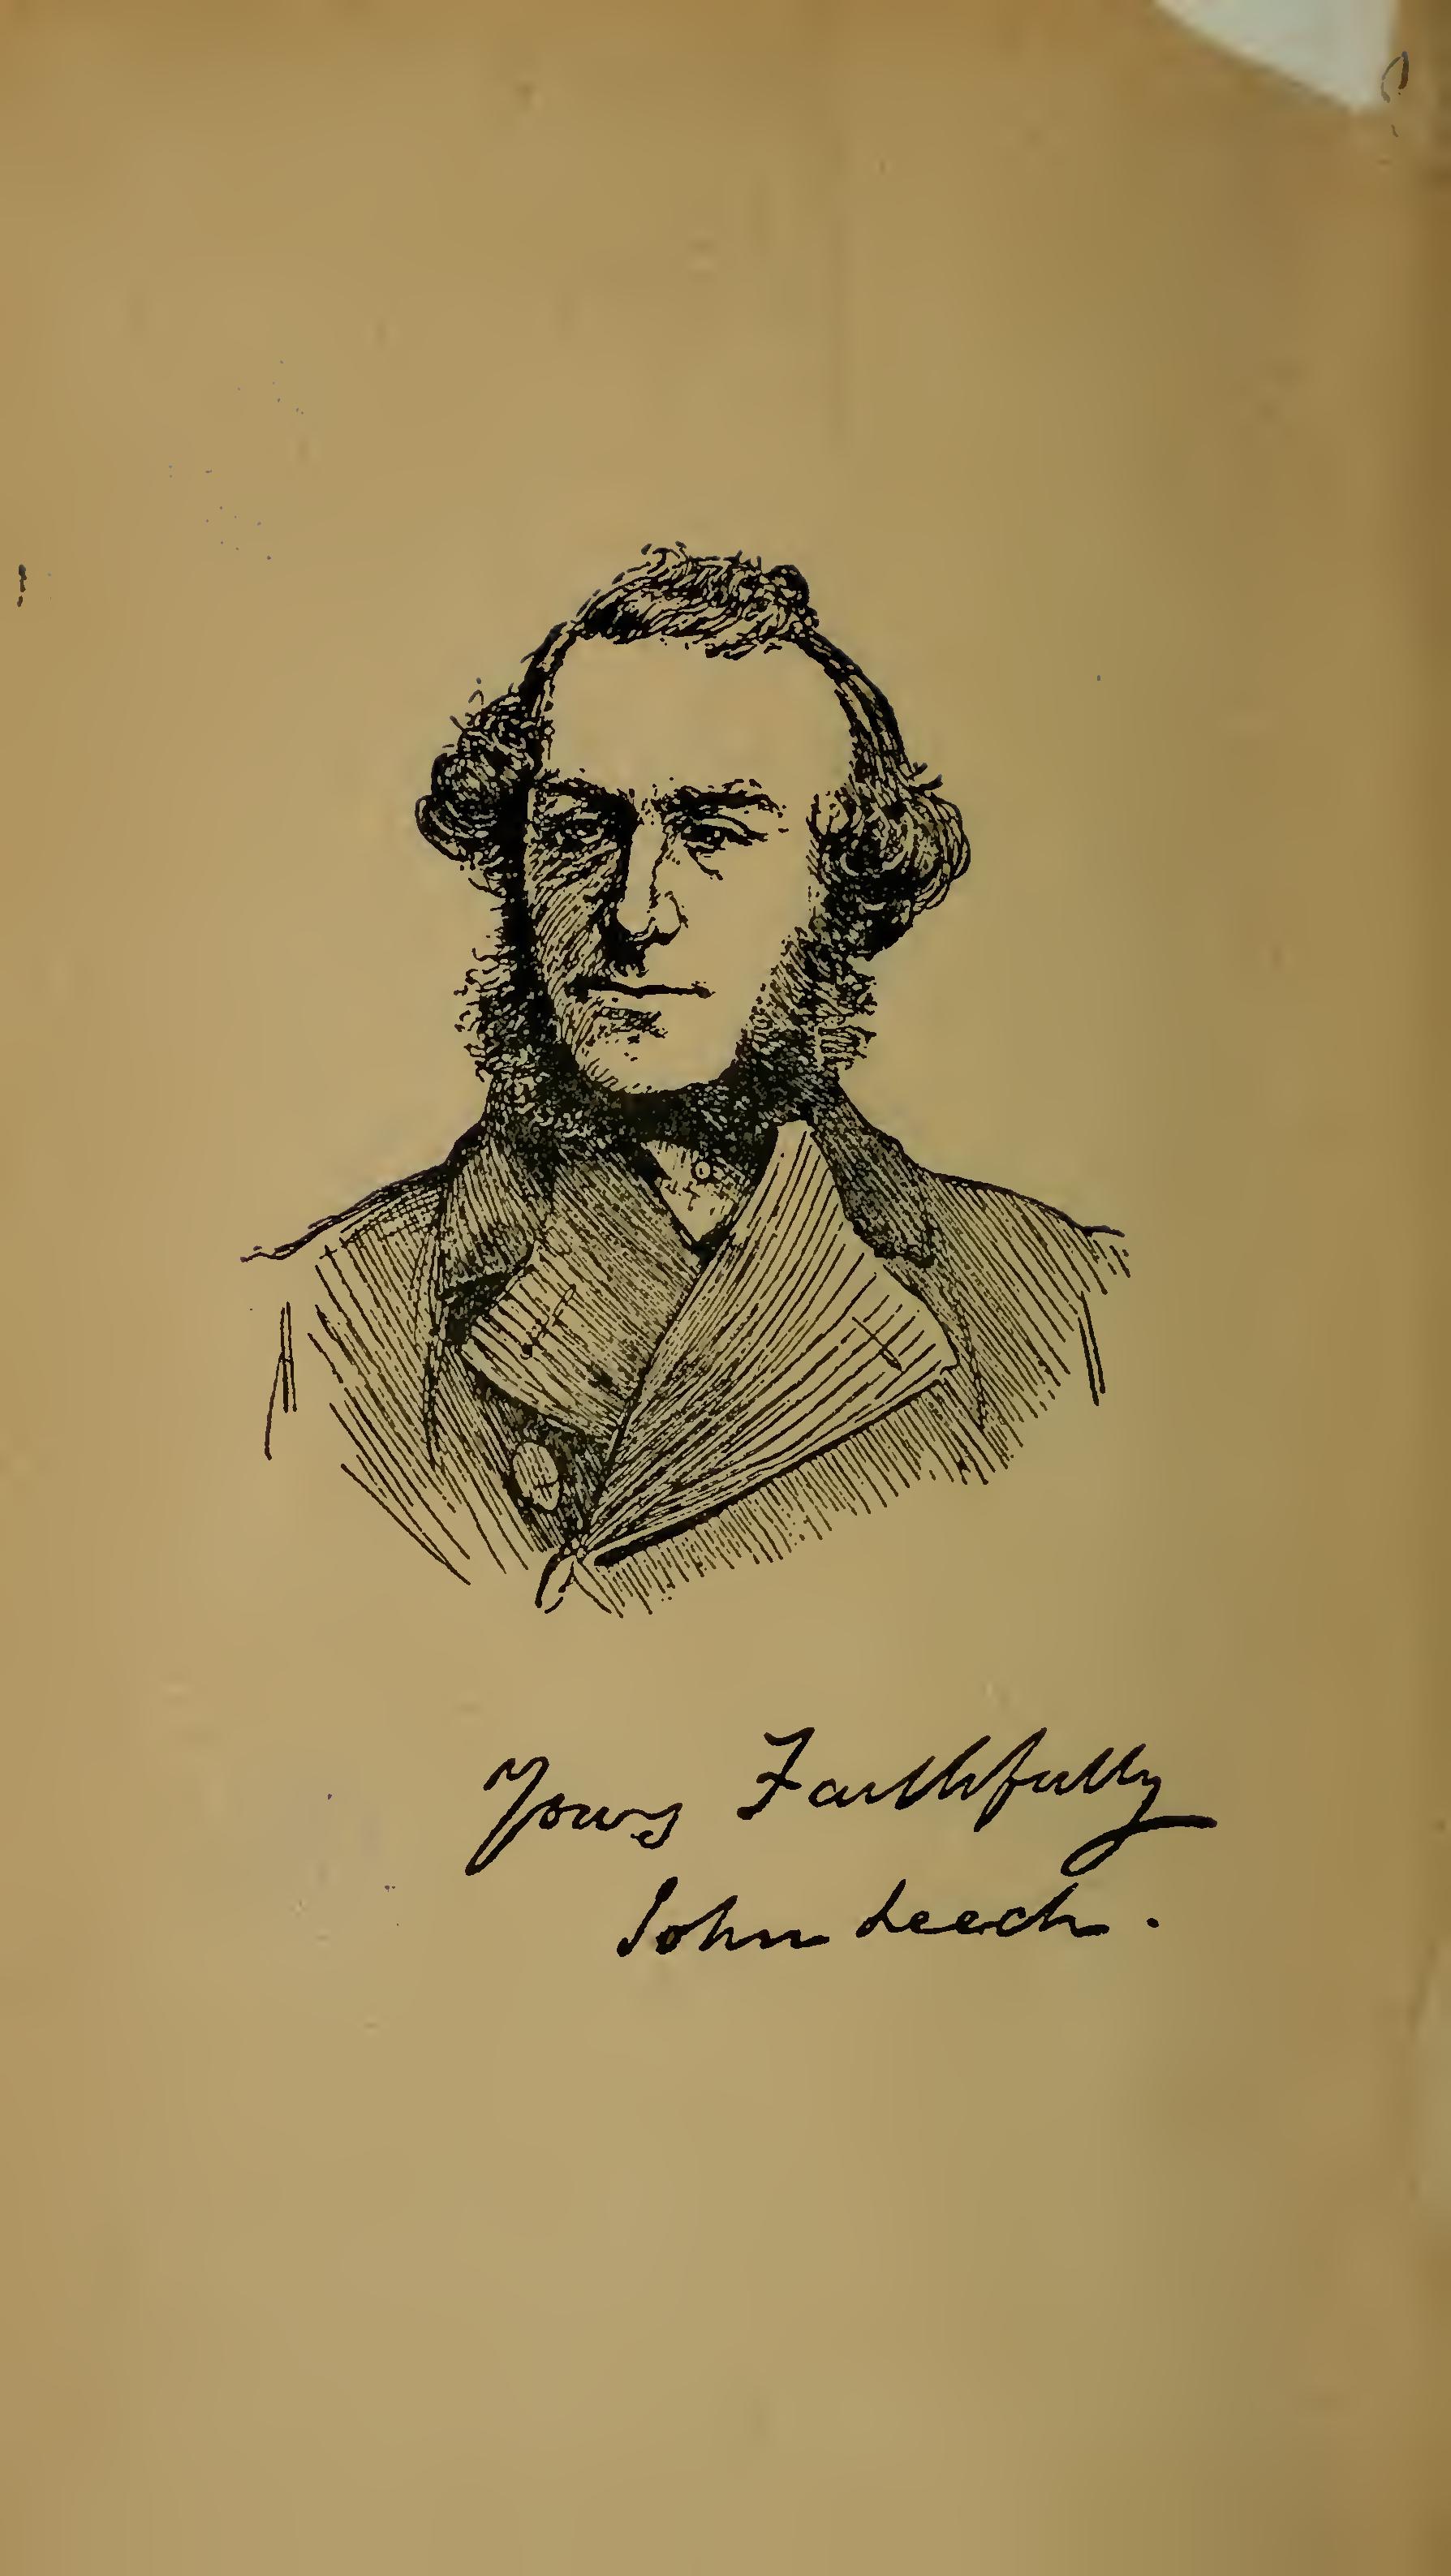 Yours Faithfully
John Leech.